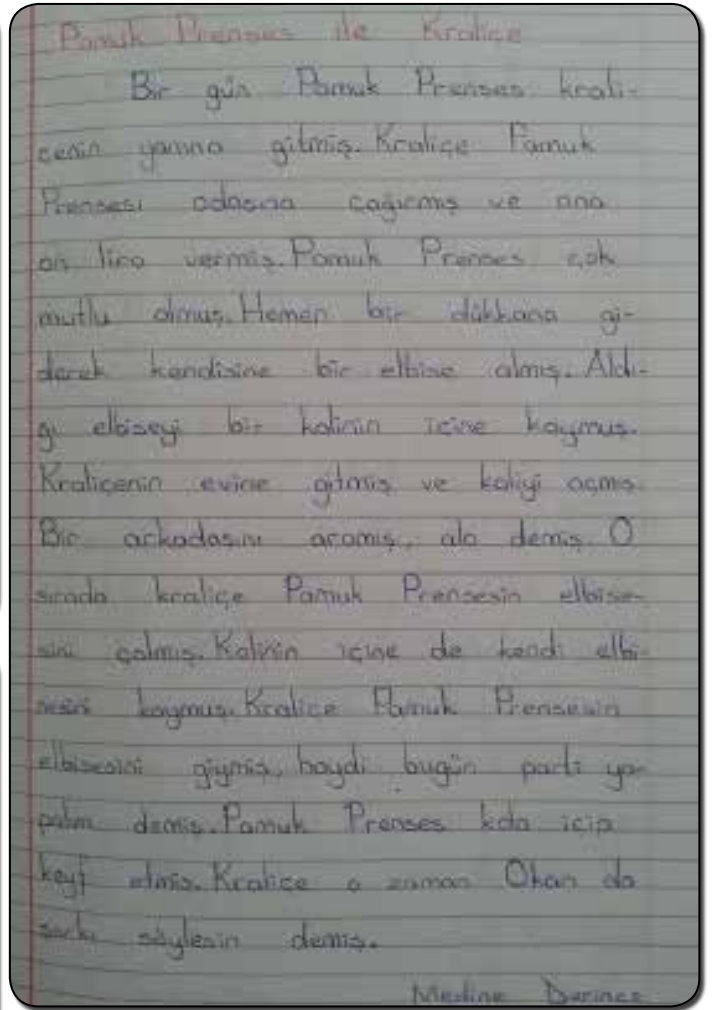 Pamuk Prenses ile Kraliçe
Bir gün Pamuk Prenses krali-
çenin yanına gitmiş. Kraliçe Pamuk
Prensesi odasına çağırmış ve ona
on lira vermiş. Pamuk Prenses çok
mutlu olmuş. Hemen bir dükkana gi-
derek kendisine bir elbise almış. Aldı-
ğı elbiseyi bir kolinin içine koymuş.
Kraliçenin evine gitmiş ve koliyi açmış.
Bir arkadaşını aramış, alo demiş. O
sırada kraliçe Pamuk Prensesin elbise-
sini çalmış. Kolinin içine de kendi elbi-
sesini koymuş. Kraliçe Pamuk Prensesin
elbisesini giymiş, haydi bugün parti ya-
palım demiş. Pamuk Prenses kola içip
keyf etmiş. Kraliçe o zaman Okan da
şarkı söylesin demiş.
Medine